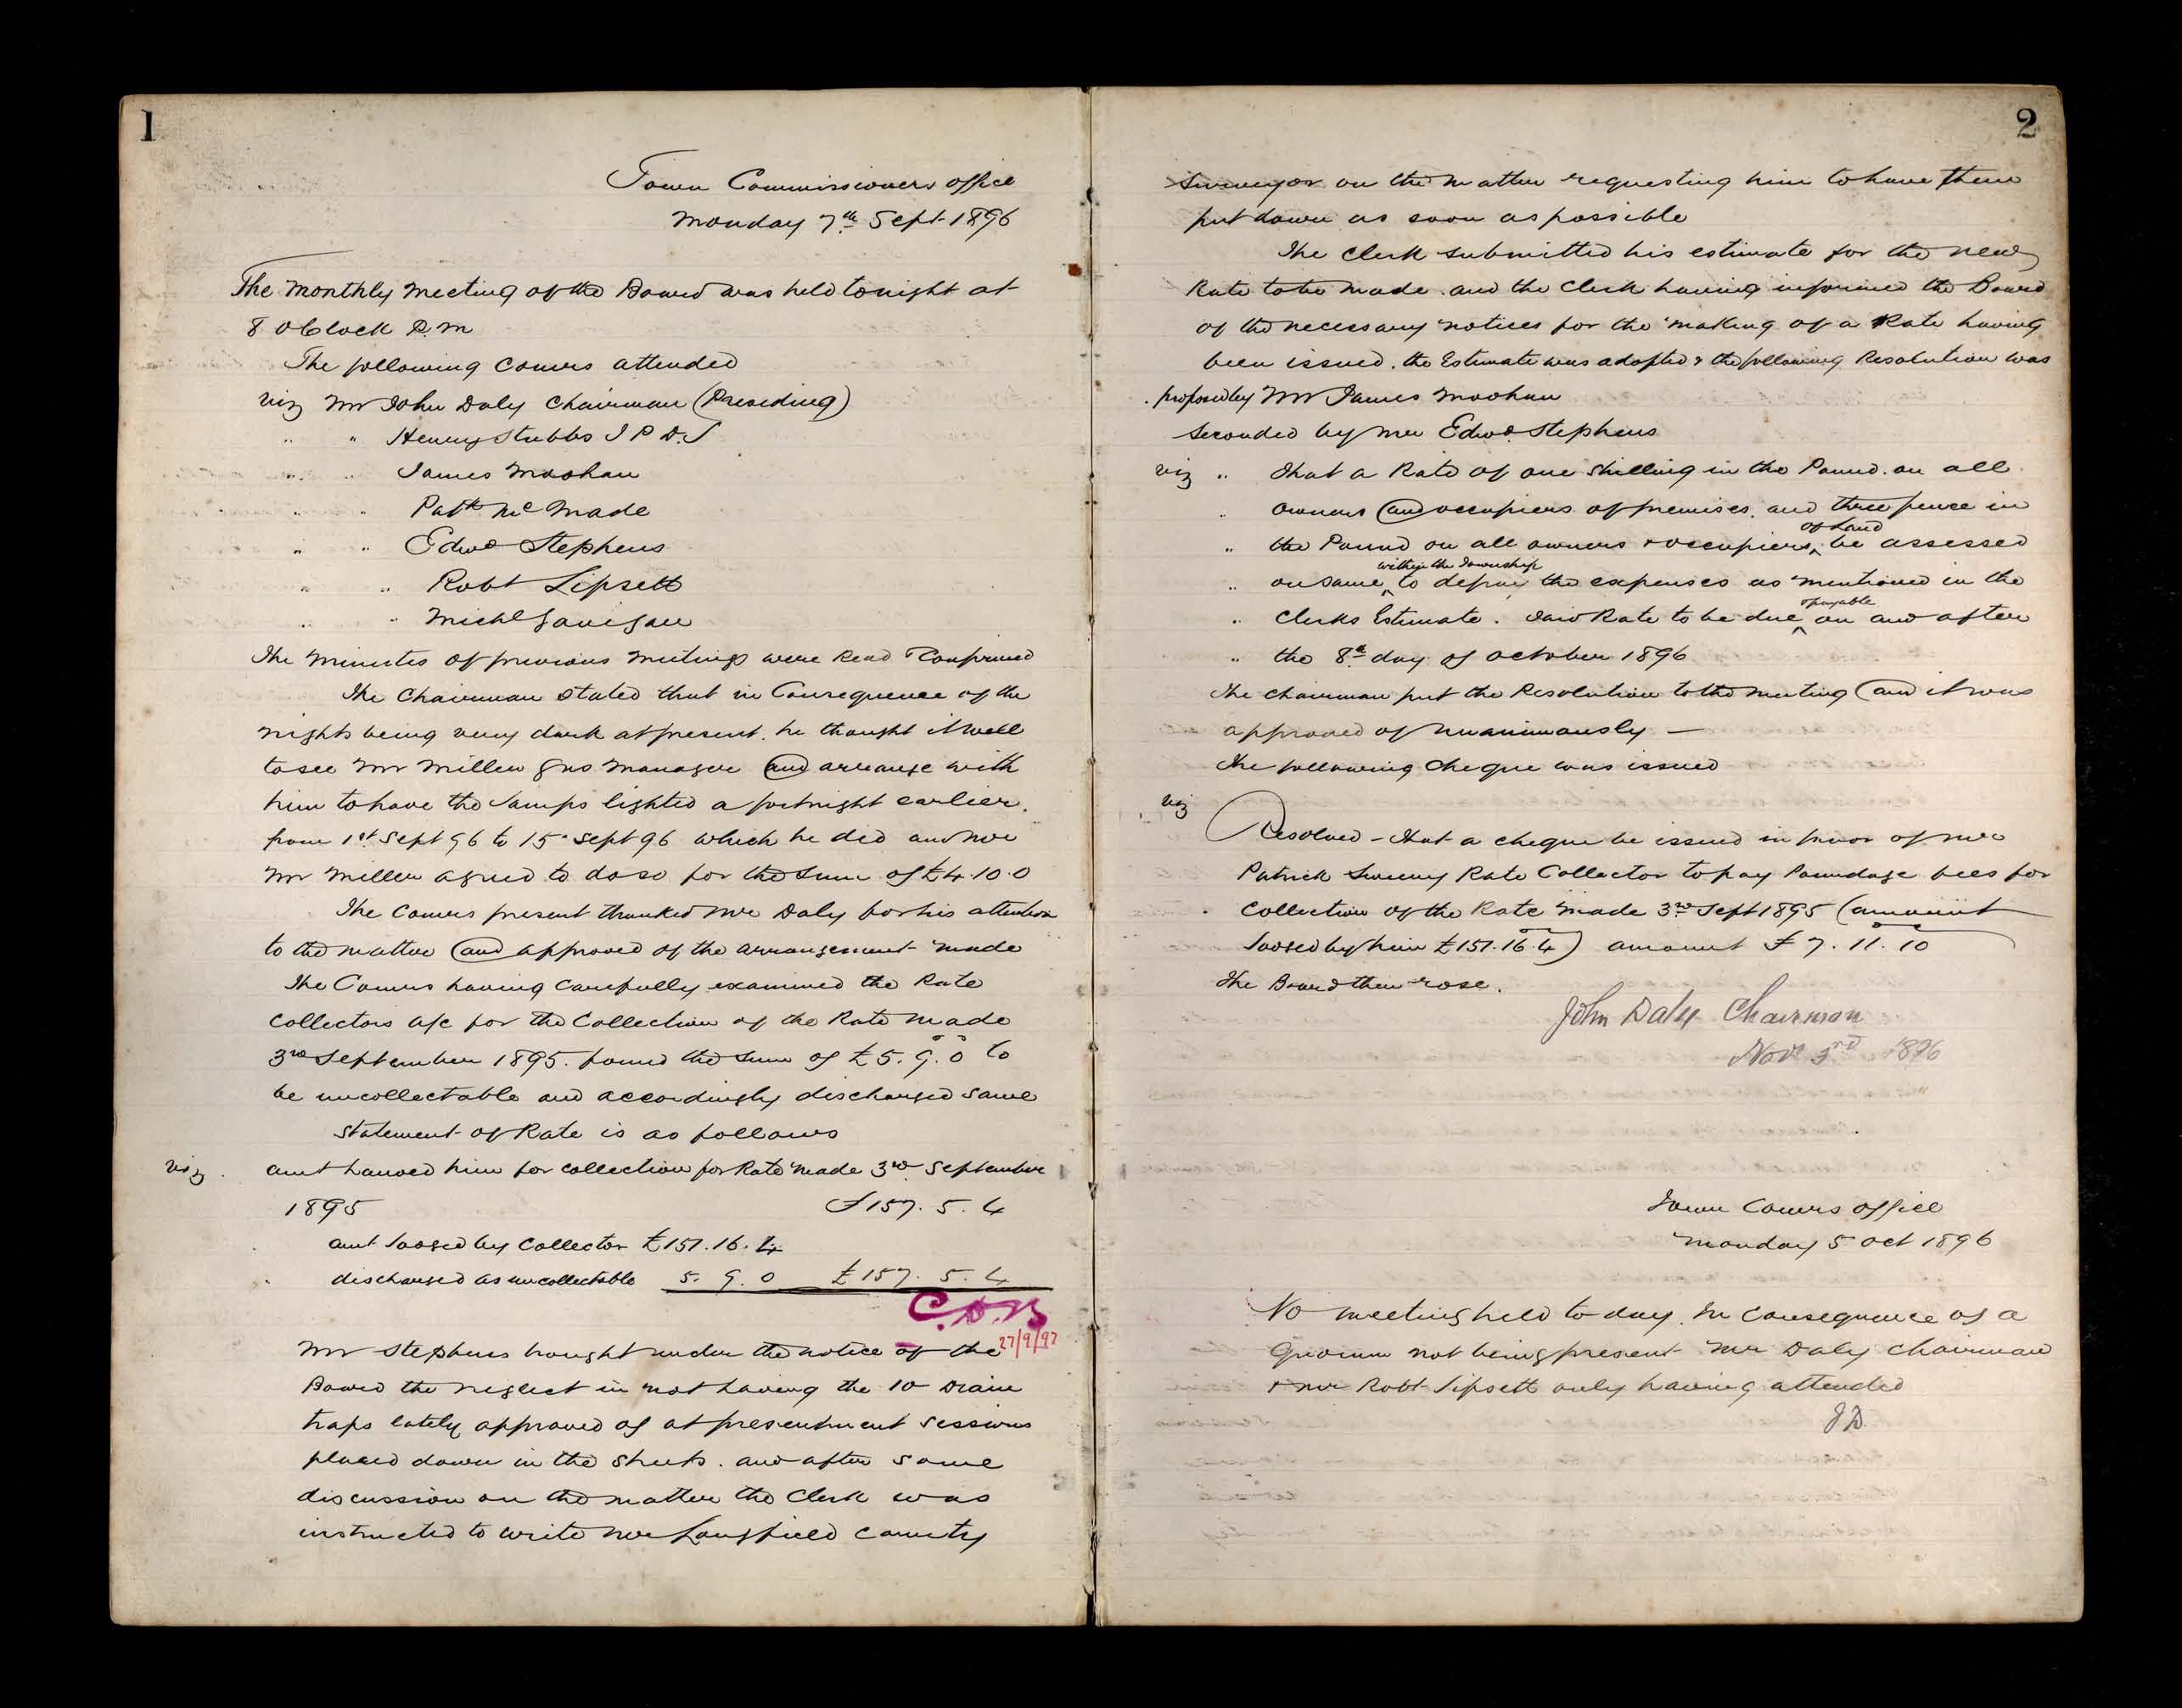 1
Town Commissioners office
Monday 7th Sept 1896
The Monthly Meeting of the Board was held tonight at
8 OClock P.M
The following Comrs attended
viz Mr John Daly Chairman (Presiding)
" " Henry Stubbs J P D.L
" " James Moohan
" " Patk Mc Made
" " Edwd Stephens
" " Robt Lipsett
" " Michl Gavigan
The Minutes of previous Meetings were Read & Confirmed
The Chairman stated that in Consequence of the
nights being very dark at present. he thought it well
to see Mr Miller Gas Manager and arrange with
him to have the Lamps lighted a fortnight earlier.
from 1st Sept 96 to 15 Sept 96 which he did and
Mr Miller agreed to do so for the sum of £4.10.0
The Comrs present thanked Mr Daly for his attention
to the matter and approved of the arrangement made
The Comrs having carefully examined the Rate
Collectors a/c for the Collection of the Rate made
3rd September 1895. found the sum of £5.9.0 to
be uncollectable and accordingly discharged same
Statement of Rate is as follows
viz. amt handed him for collection for Rate made 3rd September
1895 £157.5.4
amt lodged by Collector £151.16.4
discharged as uncollectable 5.9.0 £157.5.4
C.D.B
27/9/97
Mr Stephens brought under the notice of the
Board the neglect in not having the 10 Drain
traps lately approved of at presentment sessions
placed down in the streets. and after some
discussion on the matter the Clerk was
instructed to write Mr Langfield County
2
Surveyor on the matter requesting him to have them
put down as soon as possible
The Clerk submitted his estimate for the new
Rate to be made. and the Clerk having informed the Board
of the necessary notices for the making of a Rate having
been issued. the Estimate was adopted & the following Resolution was
proposed by Mr James Moohan
Seconded by Mr Edwd Stephens
viz " That a Rate of one Shilling in the Pound. on all
" owners and occupiers of premises. and three pence in
of Land
" the Pound on all owners & occupiers be assessed
within the Township
" on same to defray the expenses as mentioned in the
& payable
" Clerks Estimate. said Rate to be due on and after
" the 8th day of October 1896
The chairman put the Resolution to the meeting and it was
approved of unanimously —
The following cheque was issued
viz
Resolved - That a cheque be issued in favor of Mr
Patrick Sweeny Rate Collector to pay Poundage fees for
Collection of the Rate made 3rd Sept 1895 (amount
lodged by him £151.16.4) amount £7.11.10
The Board then rose.
John Daly Chairman
Novr 3rd 1896
Town Comrs office
Monday 5 Oct 1896
No meeting held to day. In consequence of a
Quorum not being present Mr Daly Chairman
& Mr Robt Lipsett only having attended
J D